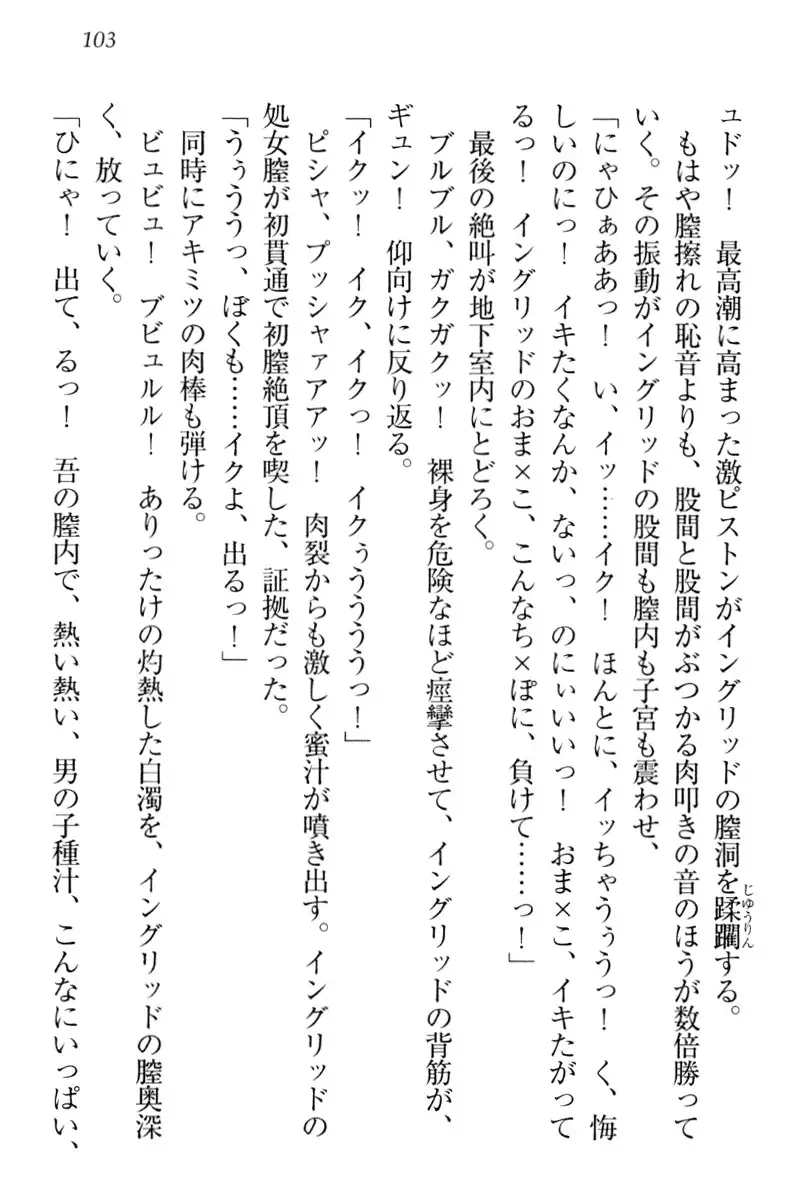 103
ュドッ!　最高潮に高まった激ピストンがイングリッドの膣洞を蹂躙する。
じゅうりん
　もはや膣擦れの恥音よりも、股間と股間がぶつかる肉叩きの音のほうが数倍勝って
いく。その振動がイングリッドの股間も膣内も子宮も震わせ、
「にゃひぁああっ!　い、イッ……イク!　ほんとに、イッちゃうぅうっ!　く、悔
しいのにっ!　イキたくなんか、ないっ、のにぃいいっ!　おま×こ、イキたがって
るっ!　イングリッドのおま×こ、こんなち×ぽに、負けて……っ!」
　最後の絶叫が地下室内にとどろく。
　ブルブル、ガクガクッ!　裸身を危険なほど痙攣させて、イングリッドの背筋が、
ギュン!　仰向けに反り返る。
「イクッ!　イク、イクっ!　イクぅうううっ!」
　ピシャ、プッシャァアアッ!　肉裂からも激しく蜜汁が噴き出す。イングリッドの
処女膣が初貫通で初膣絶頂を喫した、証拠だった。
「うぅううっ、ぼくも……イクよ、出るっ!」
　同時にアキミツの肉棒も弾ける。
　ビュビュ!　ブビュルル!　ありったけの灼熱した白濁を、イングリッドの膣奥深
く、放っていく。
「ひにゃ!　出て、るっ!　吾の膣内で、熱い熱い、男の子種汁、こんなにいっぱい、